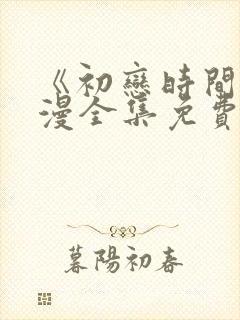 《初戀時間
漫全集免費
暮陽初春